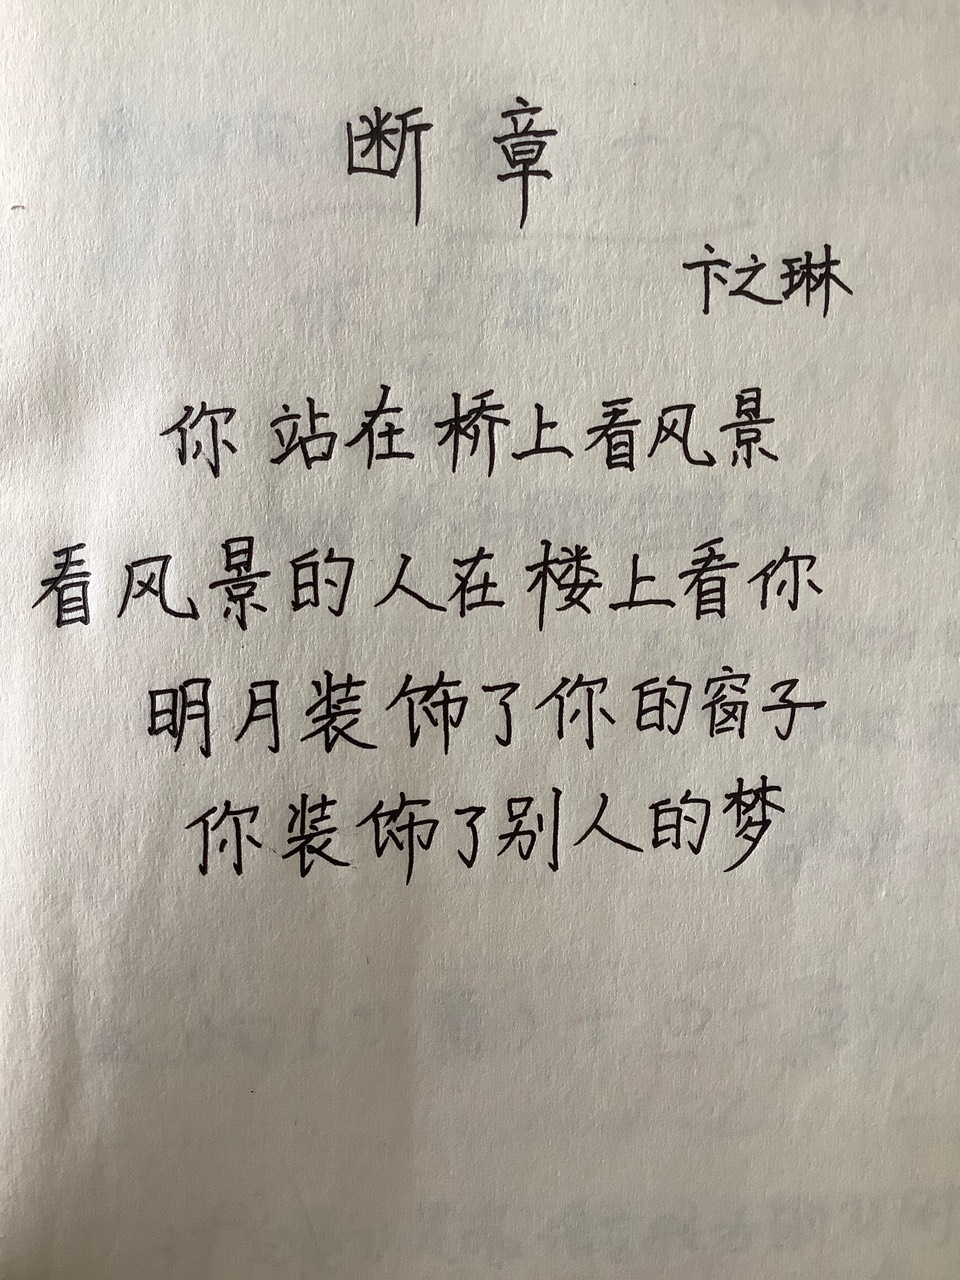 断章
卞之琳
你站在桥上看风景
看风景的人在楼上看你
明月装饰了你的窗子
你装饰了别人的梦